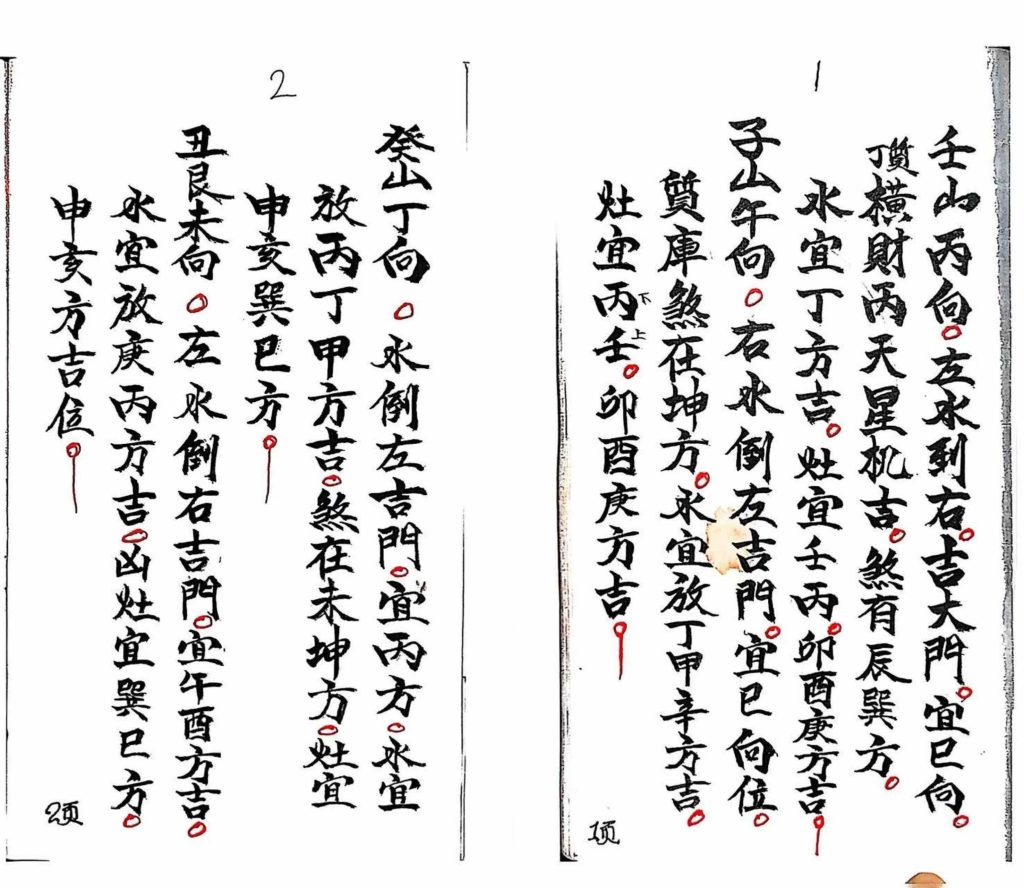 1
壬山丙向。左水到右。吉大門。宜巳向。
丁質橫財丙天星机吉。煞有辰巽方。
水宜丁方吉。灶宜壬丙。卯酉庚方吉。
子山午向。右水倒左吉門。宜巳向位。
質庫煞在坤方。水宜放丁甲辛方吉。
灶宜丙下壬上。卯酉庚方吉。
1页
2
癸山丁向。水倒左吉門。宜丙方。水宜
放丙丁甲方吉。煞在未坤方。灶宜
申亥巽巳方。
丑艮未向。左水倒右吉門。宜午酉方吉。
水宜放庚丙方吉。凶灶宜巽巳方。
申亥方吉位。
2页